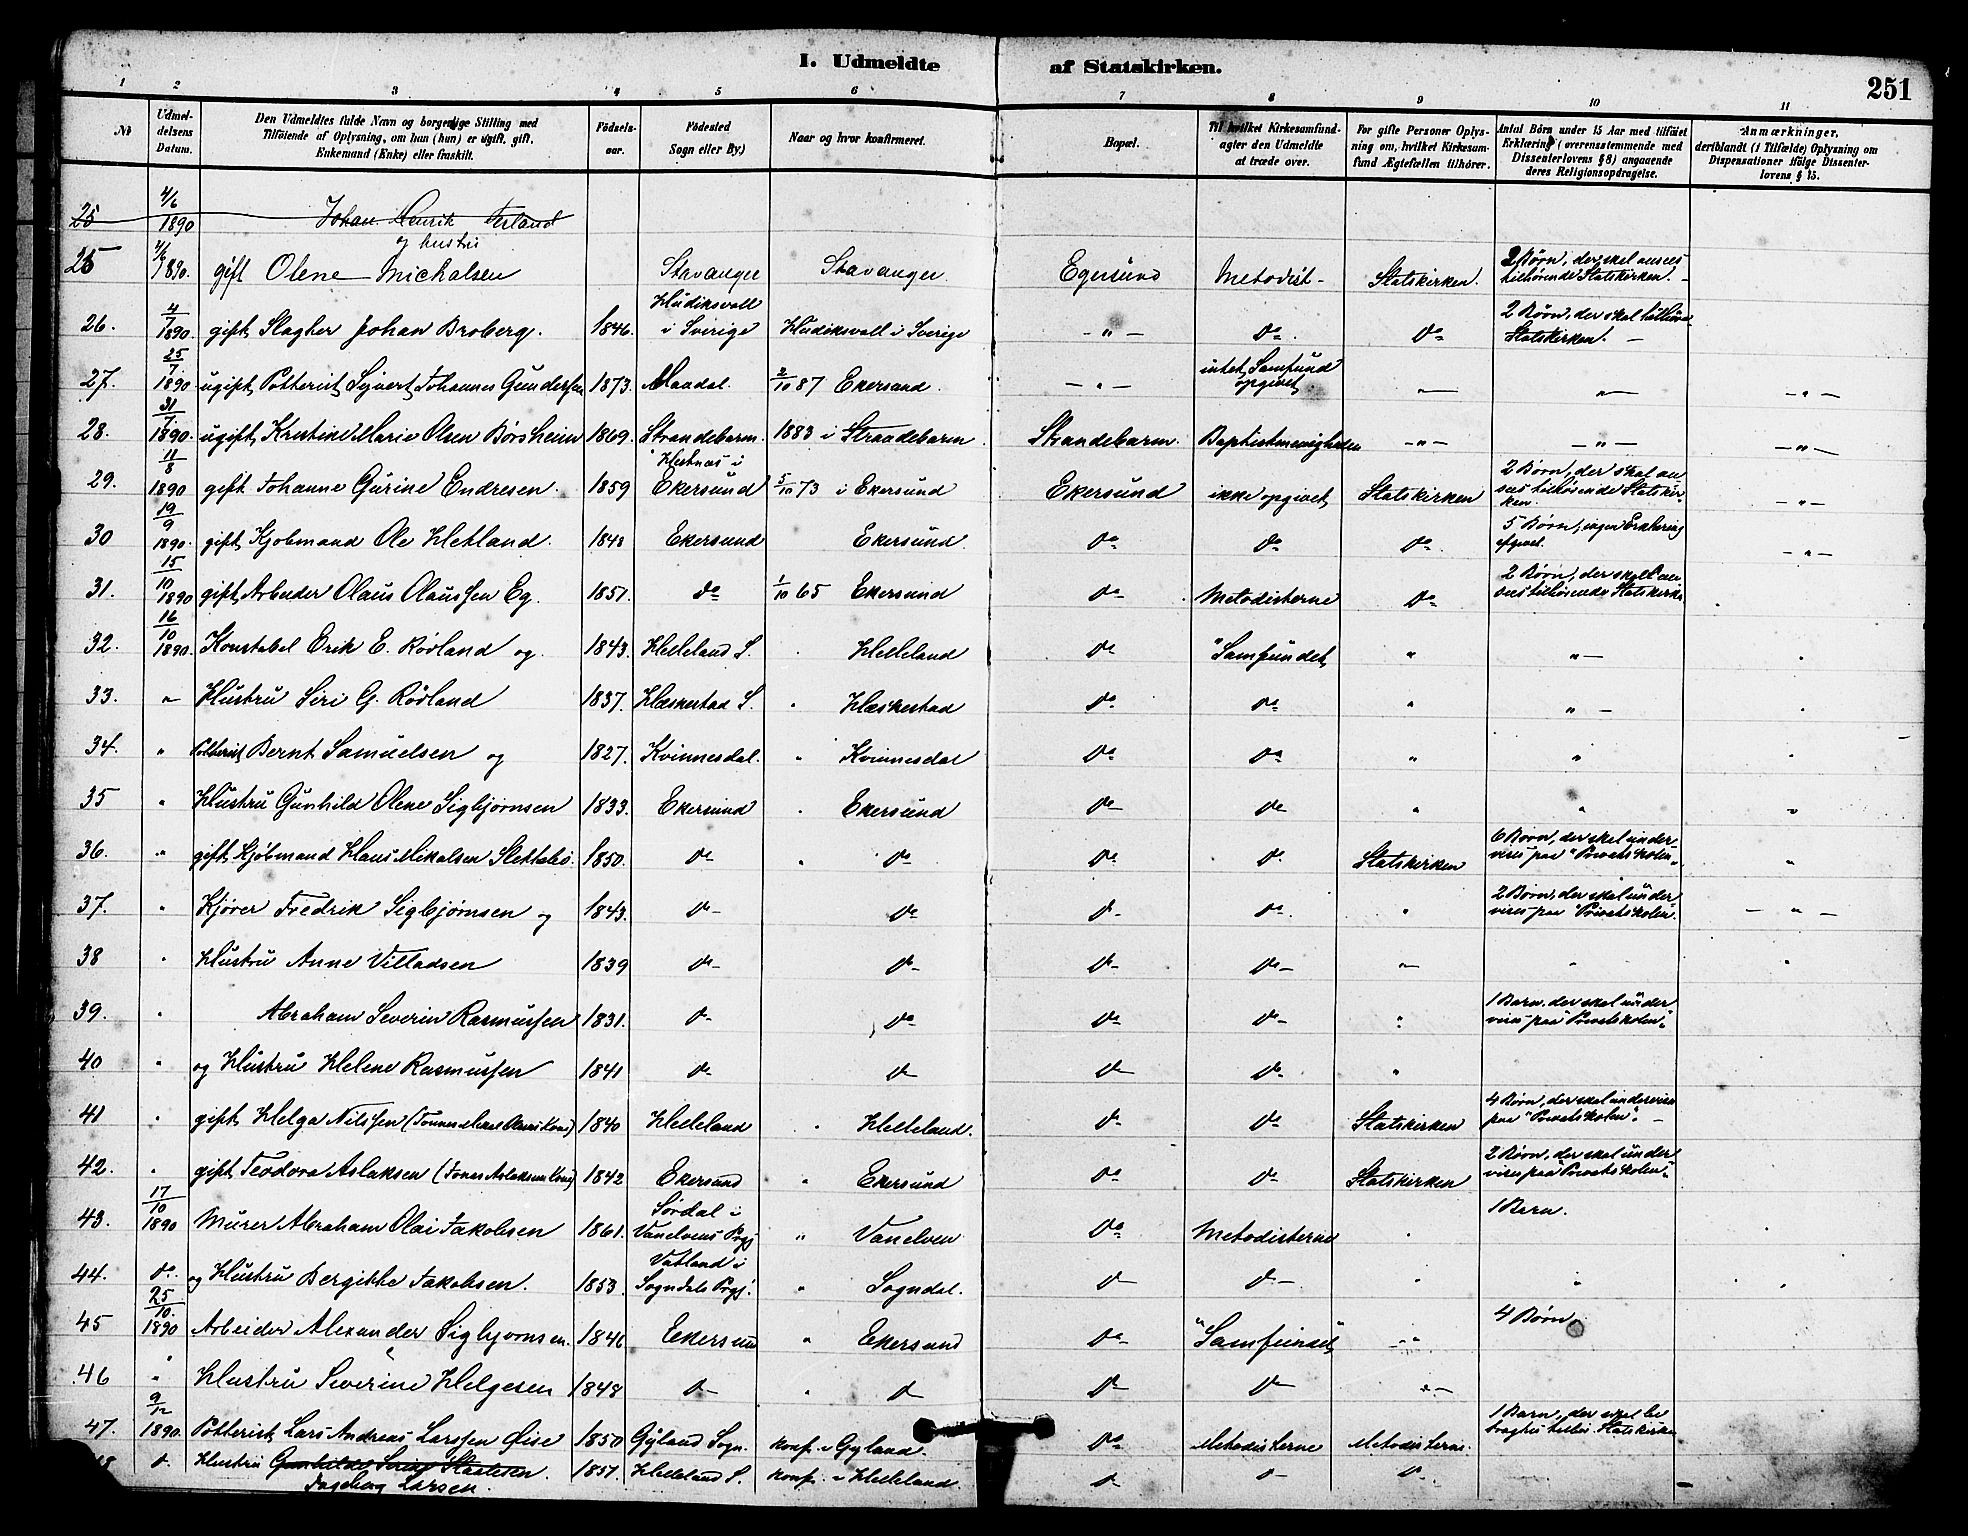 I. Udmeldte af Statskirken.
251
1 2 3 4 5 6 7 8 9 10 11
No
Udmeldelsens Datum.
Den Udmeldtes fulde Navn og borgerlige Stilling med
Tilføiende af Oplysning, om han (hun) er ugift, gift,
Enkemand (Enke) eller fraskilt.
Fødselsaar.
Fødested
Sogn eller By.)
Naar og hvor konfirmeret.
Bopæl.
Til hvilket Kirkesamfund
agter den Udmeldte
at træde over.
For gifte Personer Oplys-
ning om, hvilket Kirkesam-
fund Ægtefællen tilhører.
Antal Børn under 15 Aar med tilføiet
Erklæring (overensstemmende med
Dissenterlovens § 8) angaaende
deres Religionsopdragelse.
Anmærkninger,
deriblandt (i Tilfælde) Oplysning om
Dispensationer ifølge Dissenter-
lovens § 15.
25 4/6 1890 Johan Henrik Terland
og hustru
25 4/6 1890. gift Olene Michalsen Stavanger Stavanger. Egersund Metodist - Statskirken. 2 Børn, der skal ansees tilhørende Statskirken. -
26. 4/7 1890. gift Slagter Johan Broberg. 1846. Hudiksvall i Sverige Hudiksvall i Sverige - " - do do 2 Børn, der skal tilhøre Statskirken. -
27. 25/7 1890 ugift Potterist Sigvert Johannes Gundersen 1873. Mandal. 2/10 87 Ekersund. - " - intet Samfund opgivet - " - - " - - " -
28. 31/7 1890. ugift Kristine Marie Olsen Børsheim 1869. Strandebarm. 1883 i Strandebarm Strandebarm. Baptistmenigheden - " - - " - - " -
29. 11/8 1890 gift Johanne Gurine Endresen. 1859 Hestnes i Ekersund 5/10 73 i Ekersund Ekersund ikke opgivet Statskirken 2 Børn, der skal ansees tilhørende Statskirken - " -
30 19/9 1890. gift Kjøbmand Ole Hetland. 1848 Ekersund Ekersund. do do do 5 Børn, ingen Erklæring afgivet. - " -
31. 15/10 1890 gift Arbeider Olaus Olaussen Eg. 1851. do 1/10 65 Ekersund do Metodisterne do 2 Børn, der skal ansees tilhørende Statskirken
32. 16/10 1890. Konstabel Erik E. Rövland og 1843. Helleland S. Helleland do "Samfundet " " -
33. " Hustru Siri G. Rövland 1837. Heskestad S. " Heskestad do do " " -
34. " Potterist Bernt Samuelsen og 1827. Kvinnesdal. " Kvinnesdal do do " "
35 " Hustru Gunhild Olene Sigbjørnsen 1833. Ekersund " Ekersund do do " " "
36. " gift Kjøbmand Hans Mikalsen Slettebø. 1850. do " do do do Statskirken 6 Børn, der skal undervises paa "Privatskolen" "
37. " Kjører Fredrik Sigbjørnsen og 1843. do do do do " 2 Børn, der skal undervises paa "Privatskolen". - " -
38 " Hustru Anne Villadsen 1839 do do do do " " "
39. " Abraham Severin Rasmussen 1831. do do do do " 1 Barn, der skal undervises paa "Privatskolen".
40 " og Hustru Helene Rasmussen 1841 do do do do "
41 " gift Helga Nilssen 1840 Helleland " Helleland. do do Statskirken 4 Børn, der skal undervises paa "Privatskolen". -
42. " gift Teodora Aslaksen (Jonas Aslaksens Kone) 1842 Ekersund " Ekersund do do Statskirken 2 Børn, der skal undervises paa "Privatskolen".
43. 17/10 1890 Murer Abraham Olai Jakobsen 1861. Sørdal i Vanelvens Prgj " Vanelven do Metodisterne " 1 Barn.
44. do og Hustru Bergitte Jakobsen. 1853. Vatland i Sogndals Prgj. " Sogndal. do do " " "
45 25/10 1890 Arbeider Alexander Sigbjørnsen. 1846 Eekersund " Ekersund do "Samfundet - " 4 Børn.
46 " Hustru Severine Helgesen 1848 do " do do do " -
47. 9/12 1890. Potterist Lars Andreas Larssen Øise 1850 Gyland Sogn. konf. i Gyland. do Metodisterne Metodisterne. 1 Barn, der skal be tragtes tilhør. Statskirken
48 do Hustru Ingeborg Larsen. 1851. Helleland S. konf. i Helleland. do do do